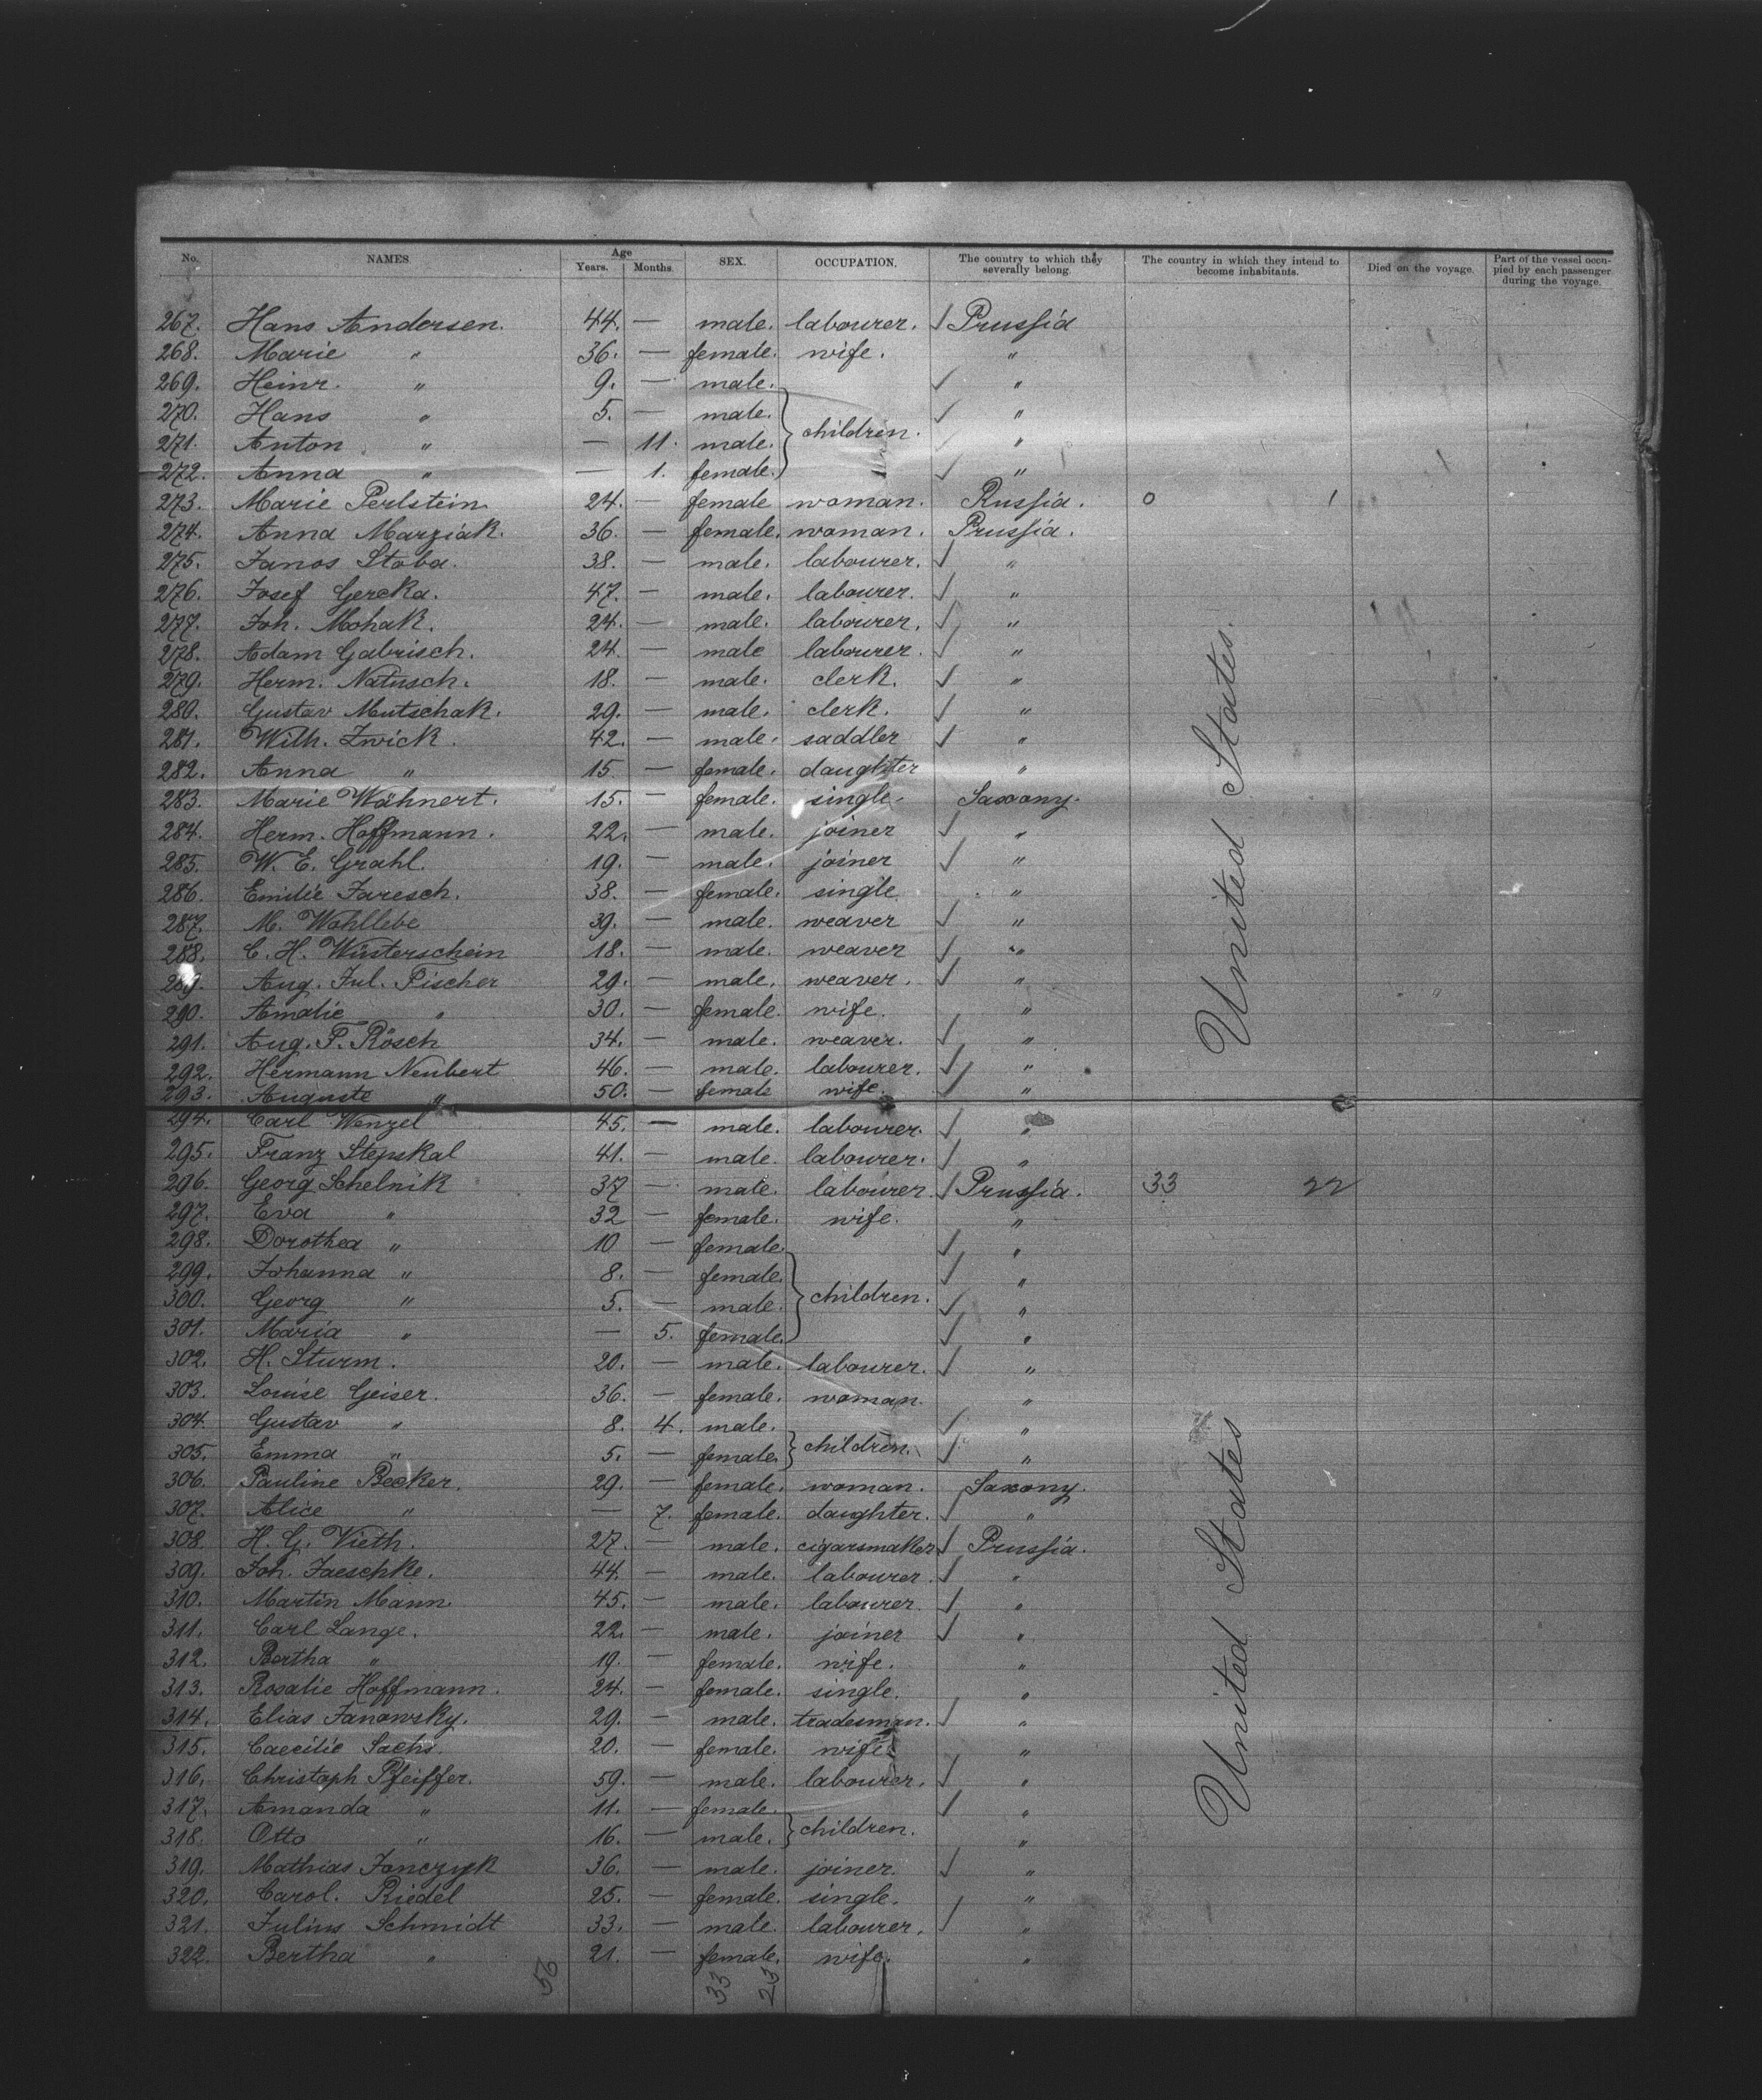 No. NAMES. Age Years. Months. SEX. OCCUPATION. The country to which they severally belong. The country in which they intend to become inhabitants. Died on the voyage. Part of the vessel occupied by each passenger during the voyage.
267. Hans Andersen. 44. — male. labourer. ✓ Prussia
268. Marie " 36. — female. wife. "
269. Heinr. " 9. — male. ✓ "
270. Hans " 5. — male. ✓ "
271. Anton " — 11. male. children. "
272. Anna " — 1. female. ✓ "
273. Marie Perlstein. 24. — female woman. Russia. 0 1
274. Anna Marziak. 36. — female. woman. Prussia.
275. Janos Stoba. 38. — male. labourer. ✓ "
276. Josef Gercka. 47. — male. labourer. ✓ "
277. Joh. Mohak. 24. — male. labourer. ✓ "
278. Adam Gabrisch. 24. — male labourer. ✓ "
279. Herm. Natusch. 18. — male. clerk. ✓ "
280. Gustav Mutschak. 29. — male. clerk. ✓ "
281. Wilh. Zwick. 42. — male. saddler ✓ "
282. Anna " 15. — female. daughter "
283. Marie Wähnert. 15. — female. single. Saxony.
284. Herm. Hoffmann. 22. — male. joiner ✓ "
285. W. E. Grahl. 19. — male. joiner ✓ "
286. Emilie Jaresch. 38. — female. single "
287. M. Wohllebe 39. — male. weaver ✓ "
288. C. H. Wüsterschein 18. — male. weaver ✓ "
289. Aug. Jul. Pischer 29. — male. weaver. ✓ "
290. Amalie " 30. — female. wife. "
291. Aug. F. Rösch 34. — male. weaver. ✓ "
292. Hermann Neubert 46. — male. labourer. ✓ "
293. Auguste " 50. — female wife. ✓ "
United States.
294. Carl Wenzel 45. — male. labourer. ✓ "
295. Franz Stepskal 41. — male. labourer. ✓ "
296. Georg Schelnik 37 — male. labourer. ✓ Prussia. 33 22
297. Eva " 32 — female. wife. "
298. Dorothea " 10 — female. ✓ "
299. Johanna " 8. — female. ✓ "
300. Georg " 5. — male. children. ✓ "
301. Maria " — 5. female. ✓ "
302. H. Sturm. 20. — male. labourer. ✓ "
303. Louise Geiser. 36. — female. woman. "
304. Gustav " 8. 4. male. ✓ "
305. Emma " 5. — female. children. ✓ "
306. Pauline Becker. 29. — female. woman. Saxony.
307. Alice " — 7. female. daughter. ✓ "
308. H. G. Vieth. 27. — male. cigarsmaker ✓ Prussia.
309. Joh. Jaeschke. 44. — male. labourer. ✓ "
310. Martin Mann 45. — male. labourer. ✓ "
311. Carl Lange. 22. — male. joiner ✓ "
312. Bertha " 19. — female. wife. "
313. Rosalie Hoffmann. 24. — female. single. "
314. Elias Janowsky. 29. — male. tradesman. ✓ "
315. Caecilie Sachs. 20. — female. wife. "
316. Christoph Pfeiffer. 59. — male. labourer. ✓ "
317. Amanda " 11. — female. ✓ "
318. Otto " 16. — male. children. "
319. Mathias Janczyk 36. — male. joiner. ✓ "
320. Carol. Riedel 25. — female. single. "
321. Julius Schmidt 33. — male. labourer. ✓ "
322. Bertha " 21. — female. wife. "
United States
56 33 23